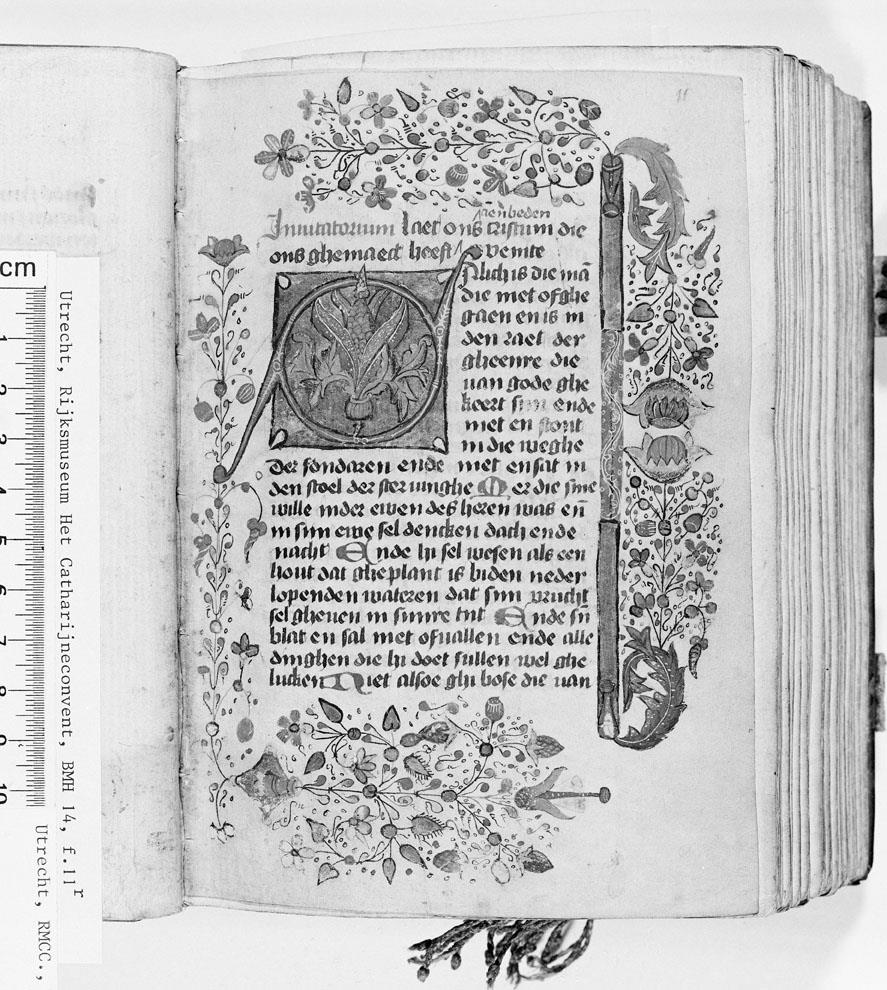 11
aenbeden
Inuitatorium laet ons cristum die
ons ghemaect heeft Venite
Alich is die mā
die niet of ghe
gaen en is in
den raet der
gheenre die
uan gode ghe
keert sijn ende
niet en stont
in die weghe
der sondaren ende niet en sat in
den stoel der steruinghe Mer die sine
wille inder ewen des heren was eñ
in sijn ewe sel dencken dach ende
nacht Ende hi sel wesen als een
hout dat gheplant is biden neder
lopenden wateren dat sijn vrucht
sel gheuen in sinre tijt Ende sijn
blat en sal niet ofuallen ende alle
dinghen die hi doet sullen wel ghe
lucken Niet alsoe ghi bose die uan
cm
1
2
3
4
5
6
7
8
9
10
Utrecht, Rijksmuseum Het Catharijneconvent, BMH 14, f.11r
Utrecht, RMCC.,